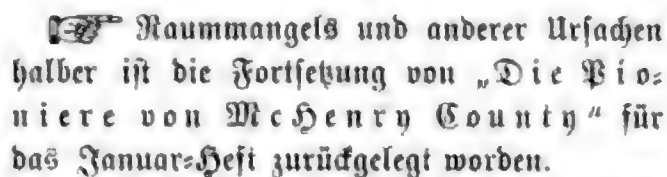 ☞ Raummangels und anderer Ursachen
halber ist die Fortsetzung von „Die Pio-
niere von McHenry County“ für
das Januar-Heft zurückgelegt worden.